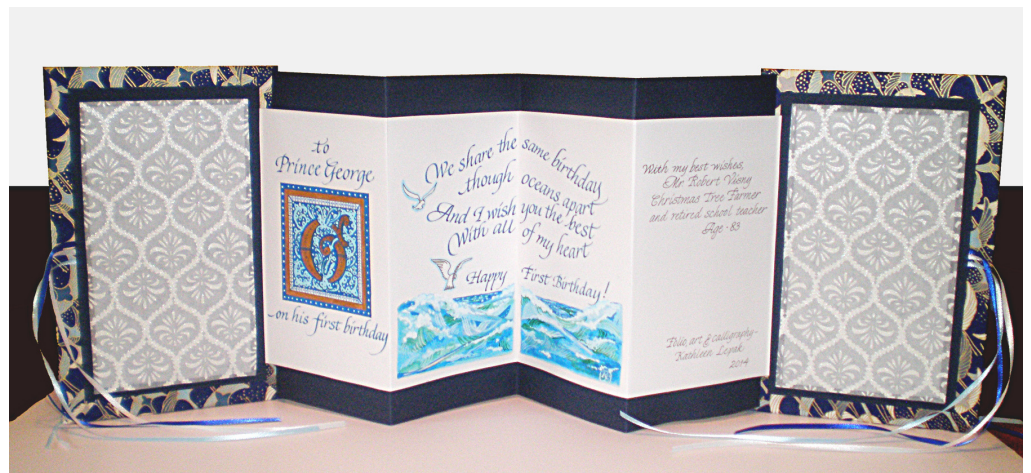 to
Prince George
G
~on his first birthday
We share the same birthday
though oceans apart
And I wish you the best
With all of my heart
Happy First Birthday!
With my best wishes,
Mr. Robert Viony
Christmas Tree Farmer
and retired school teacher
Age - 83
Folio, art & calligraphy-
Kathleen
2014